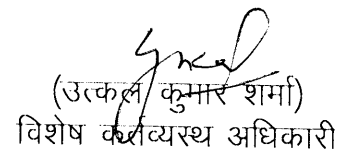 (उत्कल कुमार शर्मा)
विशेष कर्तव्यस्थ अधिकारी